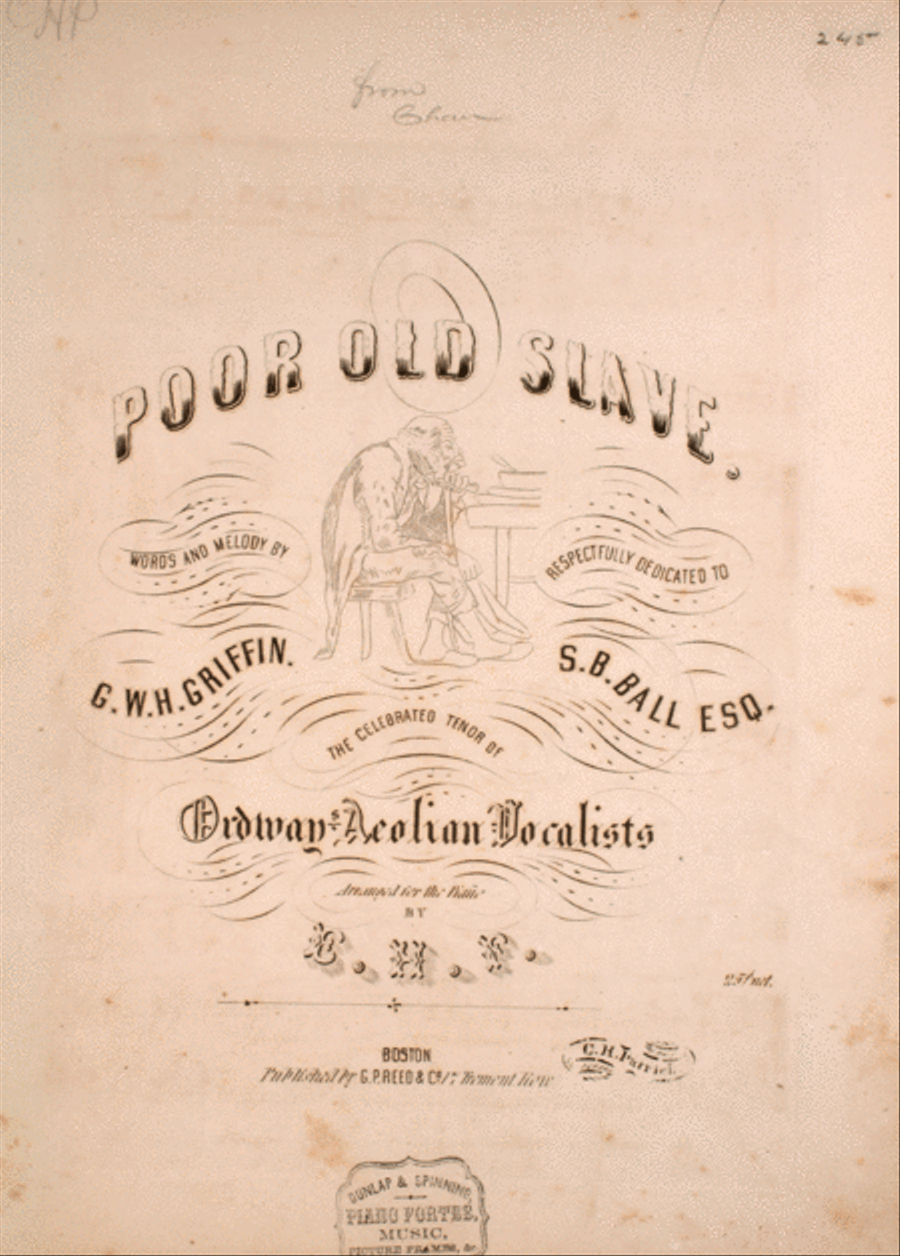 245
from
POOR OLD SLAVE.
WORDS AND MELODY BY
G.W.H. GRIFFIN.
RESPECTFULLY DEDICATED TO
S.B. BALL ESQ.
THE CELEBRATED TENOR OF
Ordway's Aeolian Vocalists
Arranged for the Piano
BY
C. H. F.
25¢ net.
BOSTON
Published by G.P. REED & Co. 17 Tremont Row
DUNLAP & SPINNING,
PIANO FORTES,
MUSIC,
PICTURE FRAMES, &c